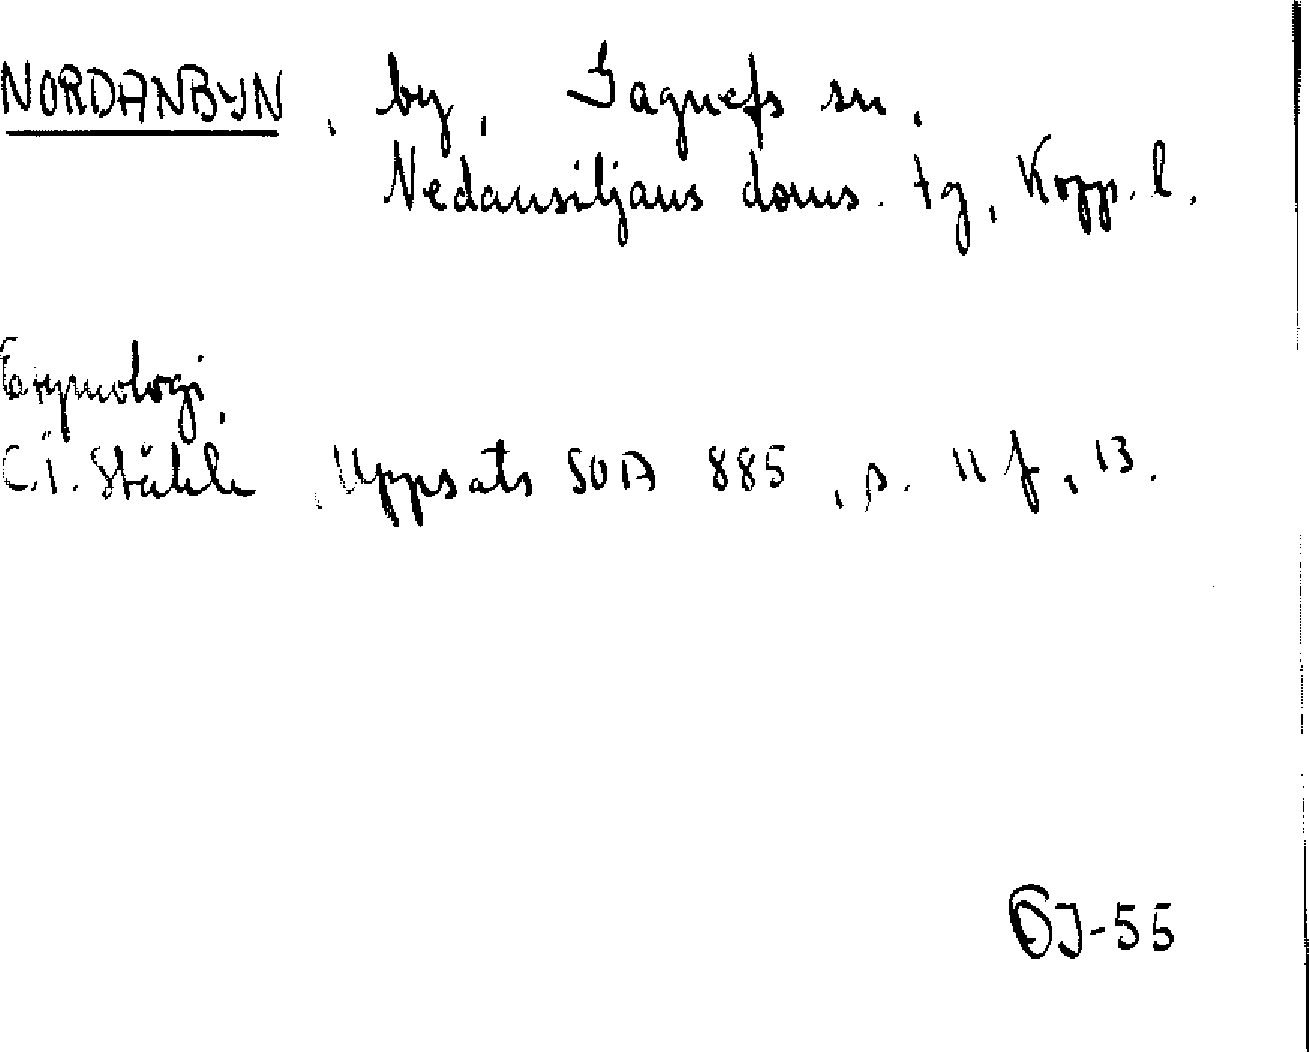 NORDANBYN, by, Gagnefs sn,
Nedansiljans doms. tg, Kopp. l.
Etymologi
C.I. Ståhle, Uppsats SOA 885, s. 11 f, 13.
ÖJ-55